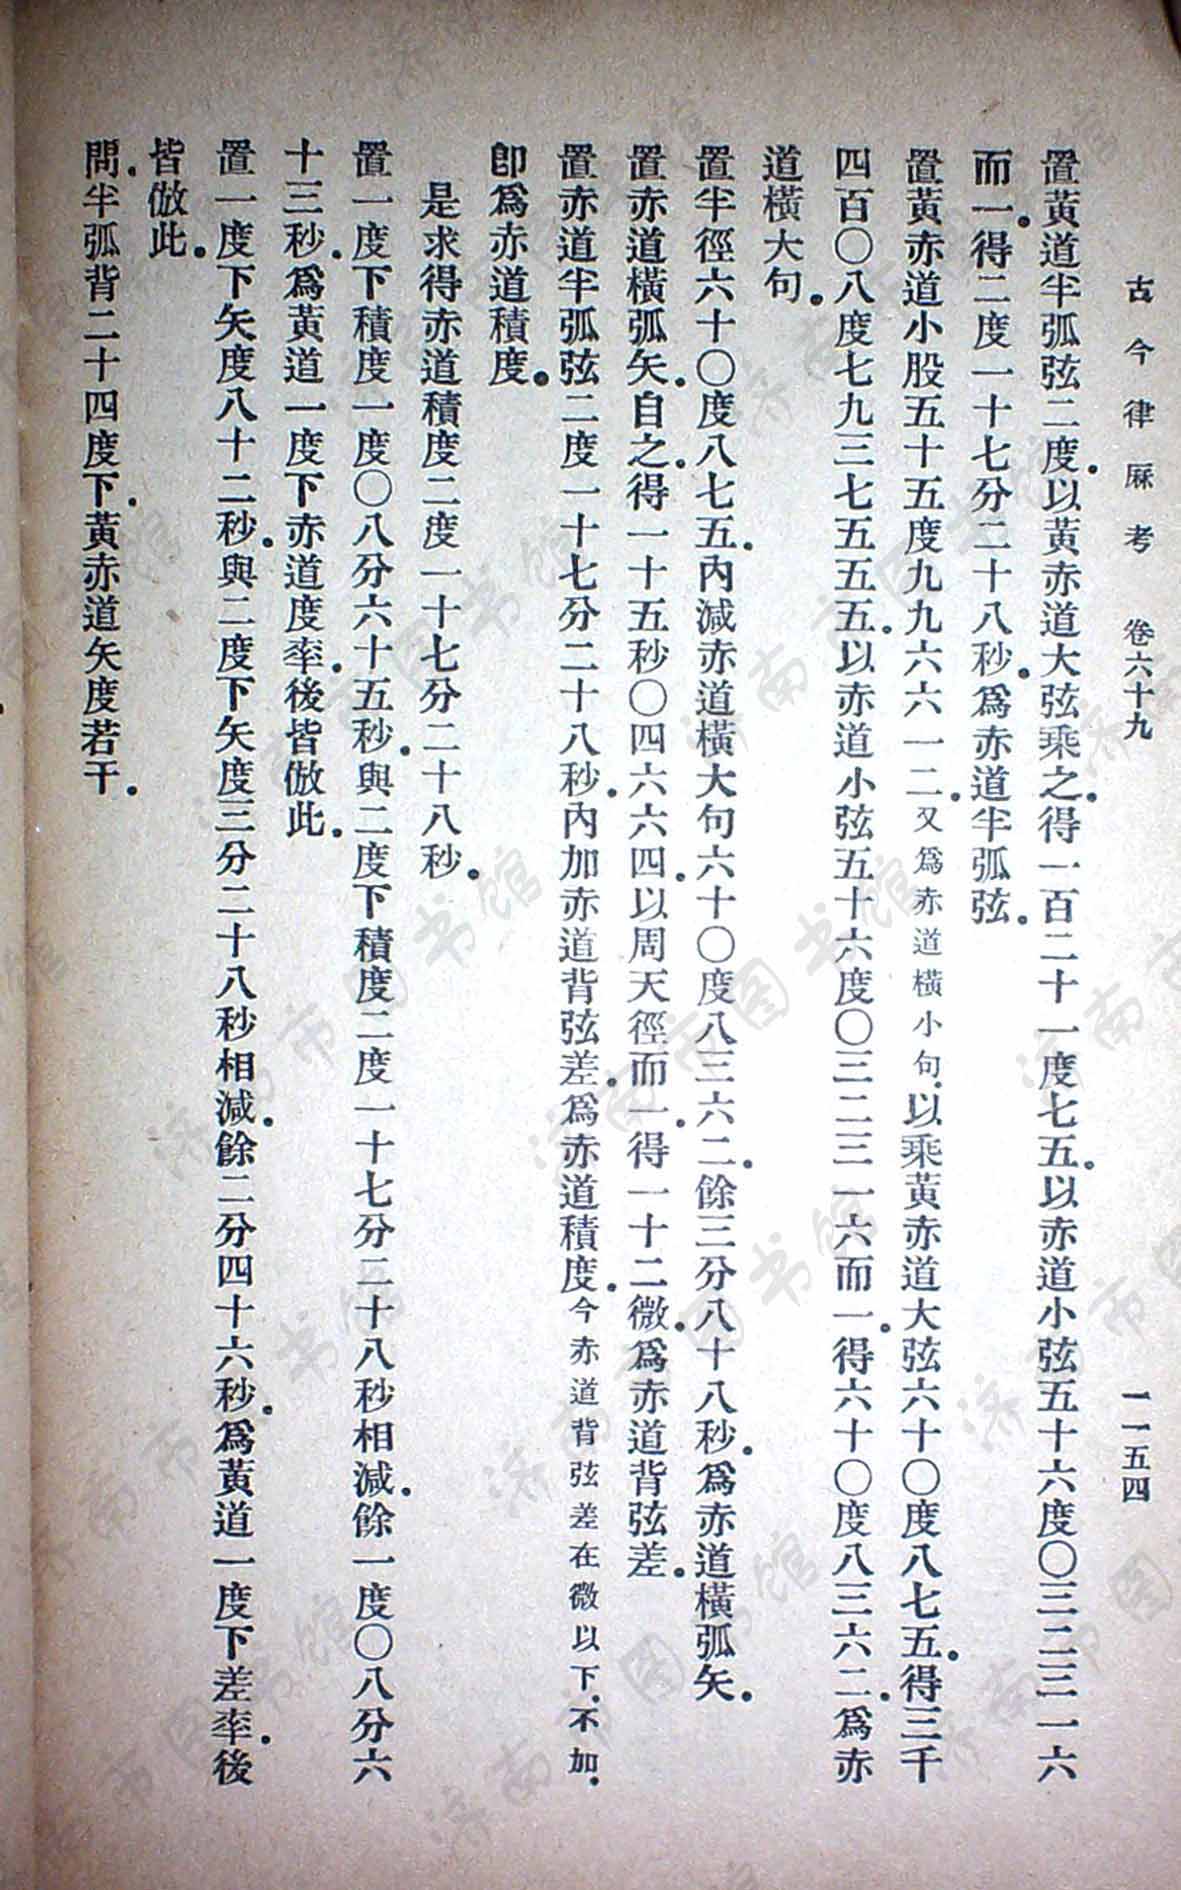 古今律厤考　卷六十九　一一五四
置黃道半弧弦二度。以黃赤道大弦乘之。得一百二十一度七五。以赤道小弦五十六度〇三二三一六
而一。得二度一十七分二十八秒。爲赤道半弧弦。
置黃赤道小股五十五度九九六六一二。又爲赤道橫小句。以乘黃赤道大弦六十〇度八七五。得三千
四百〇八度七九三七五五五。以赤道小弦五十六度〇三二三一六而一。得六十〇度八三六二。爲赤
道橫大句。
置半徑六十〇度八七五。內減赤道橫大句六十〇度八三六二。餘三分八十八秒。爲赤道橫弧矢。
置赤道橫弧矢。自之。得一十五秒〇四六六四。以周天徑而一。得一十二微。爲赤道背弦差。
置赤道半弧弦二度一十七分二十八秒。內加赤道背弦差。爲赤道積度。今赤道背弦差在微以下。不加。
卽爲赤道積度。
是求得赤道積度二度一十七分二十八秒。
置一度下積度一度〇八分六十五秒。與二度下積度二度一十七分二十八秒相減。餘一度〇八分六
十三秒。爲黃道一度下赤道度率。後皆倣此。
置一度下矢度八十二秒。與二度下矢度三分二十八秒相減。餘二分四十六秒。爲黃道一度下差率。後
皆倣此。
問。半弧背二十四度下。黃赤道矢度若干。
济南市图书馆